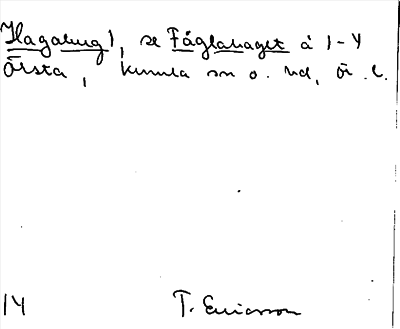 Hagaberg 1, se Fåglahaget å 1-4
Örsta, Kumla sn o. hd, Ör. l.
14 T. Ericsson